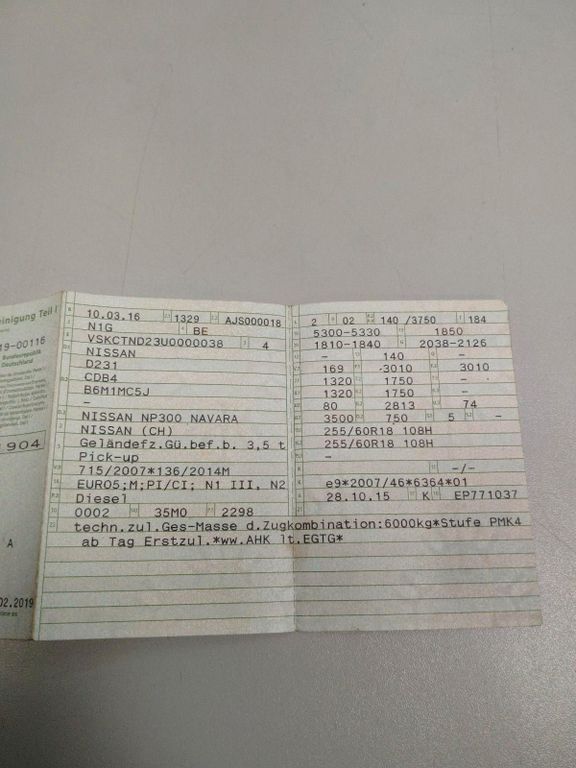 einigung Teil I
19-00116
Bundesrepublik
Deutschland
904
A
02.2019
10.03.16 1329 AJS000018
N1G BE
VSKCTND23U0000038 4
NISSAN
D231
CDB4
B6M1MC5J
–
NISSAN NP300 NAVARA
NISSAN (CH)
Geländefz.Gü.bef.b. 3,5 t
Pick-up
715/2007*136/2014M
EURO5;M;PI/CI; N1 III, N2
Diesel
0002 35M0 2298
techn.zul.Ges-Masse d.Zugkombination:6000kg*Stufe PMK4
ab Tag Erstzul.*ww.AHK lt.EGTG*
2 02 140 /3750 184
5300-5330 1850
1810-1840 2038-2126
– 140 –
169 3010 3010
1320 1750 –
1320 1750 –
80 2813 74
3500 750 5 –
255/60R18 108H
255/60R18 108H
–
–/–
e9*2007/46*6364*01
28.10.15 K EP771037